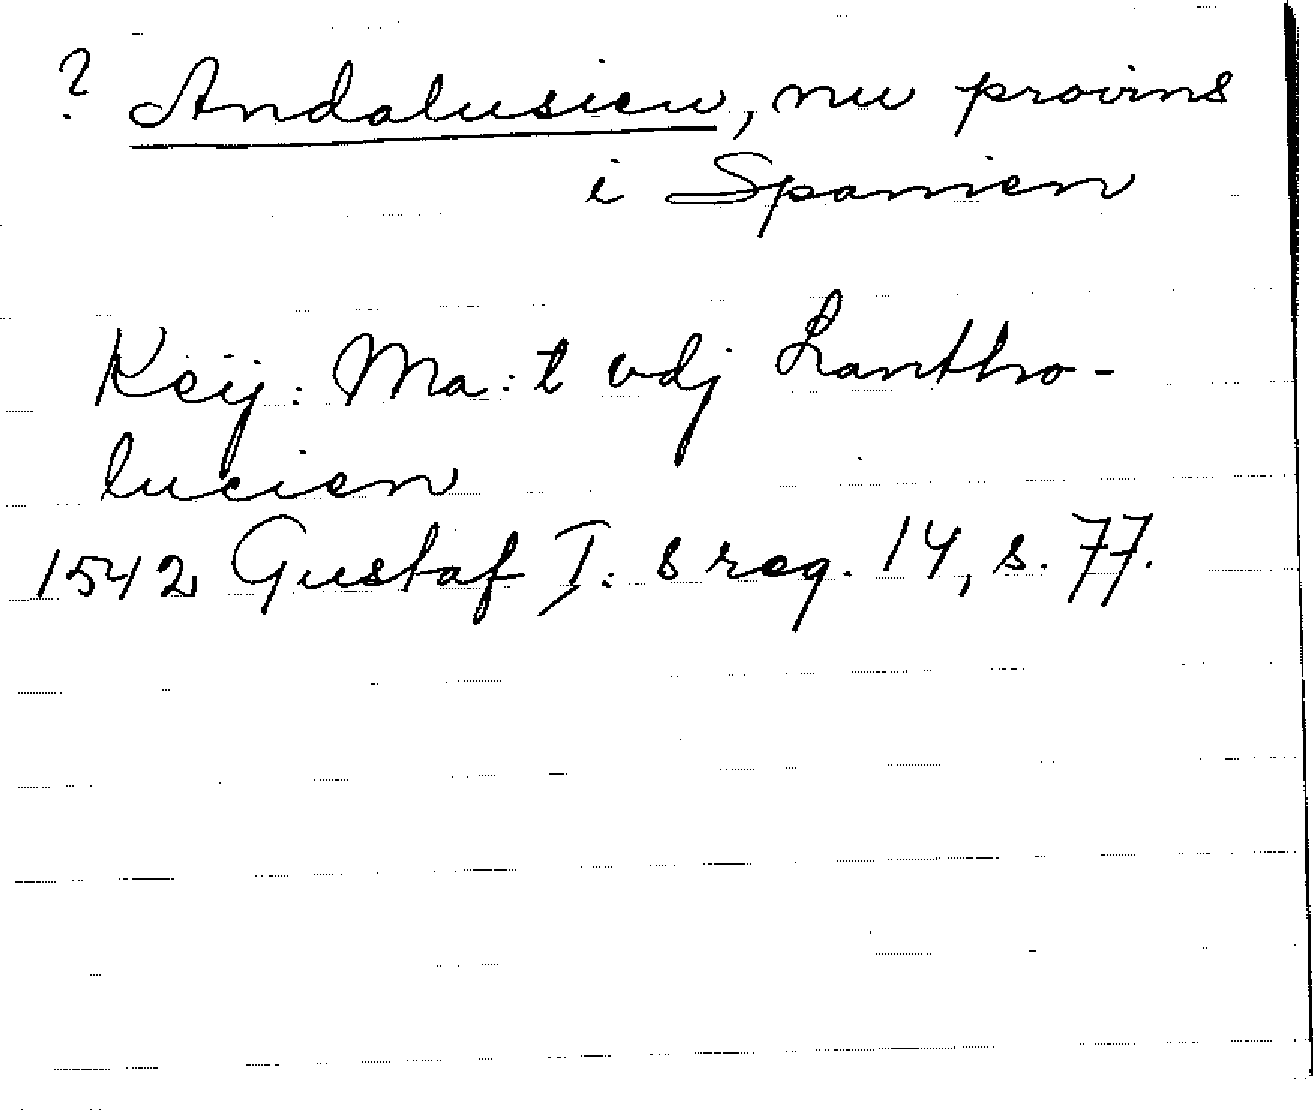 ? Andalusien, nu provins
i Spanien
Keij: Ma:t vdj Lantho-
lucien
1542 Gustaf I:s reg. 14, s. 77.